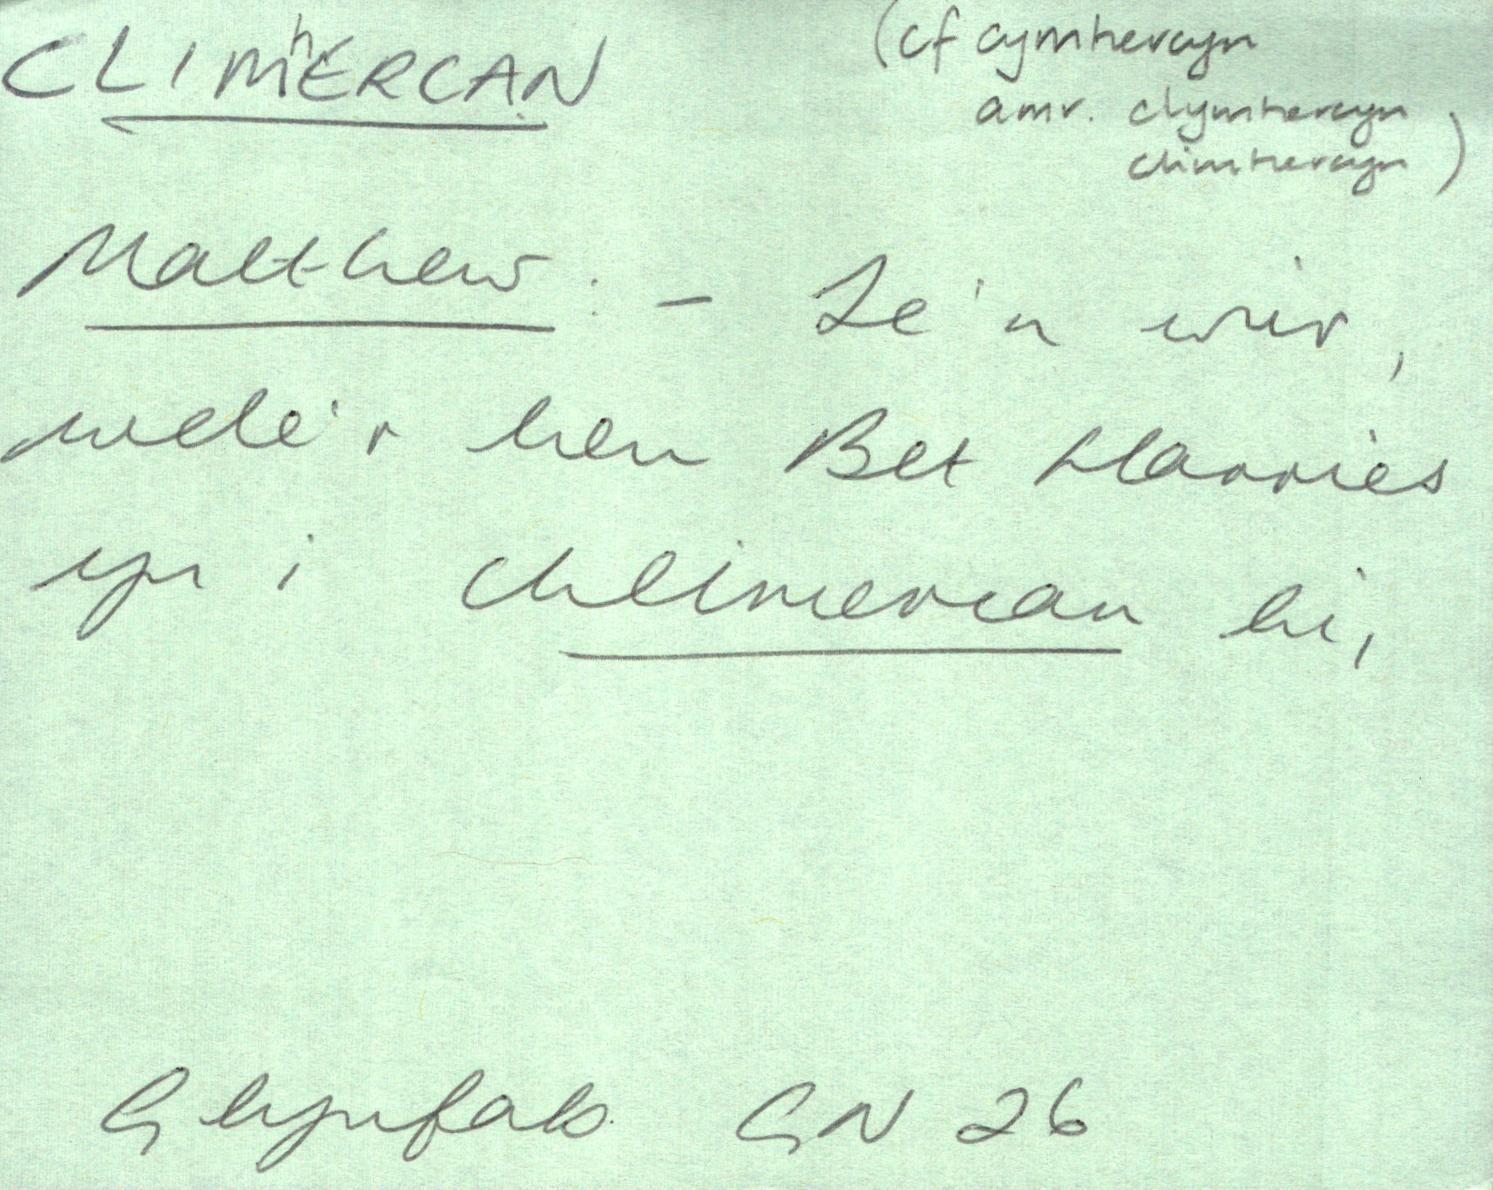 CLIMhERCAN
(cf cymhercyn
amr. clymhercyn
climhercyn)
Matthew :- Ie'n wir,
wele'r hen Bet Harries
yn i chlimercan hi,
Glynfab GN 26